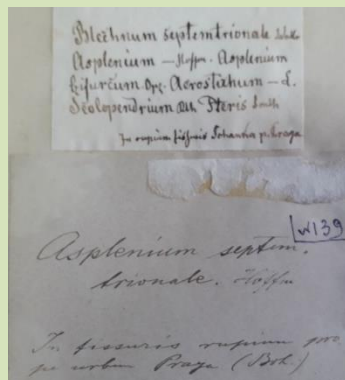 Blechnum septemtrionale
Asplenium — Hoffm. Asplenium
bifurcum Opz. Acrostichum — L.
Scolopendrium Rth. Pteris Smith
In rupium fissuris p. Praga
W139
Asplenium septem.
trionale. Hoffm
In fissuris rupium pro
pe urbem Praga (Boh.)